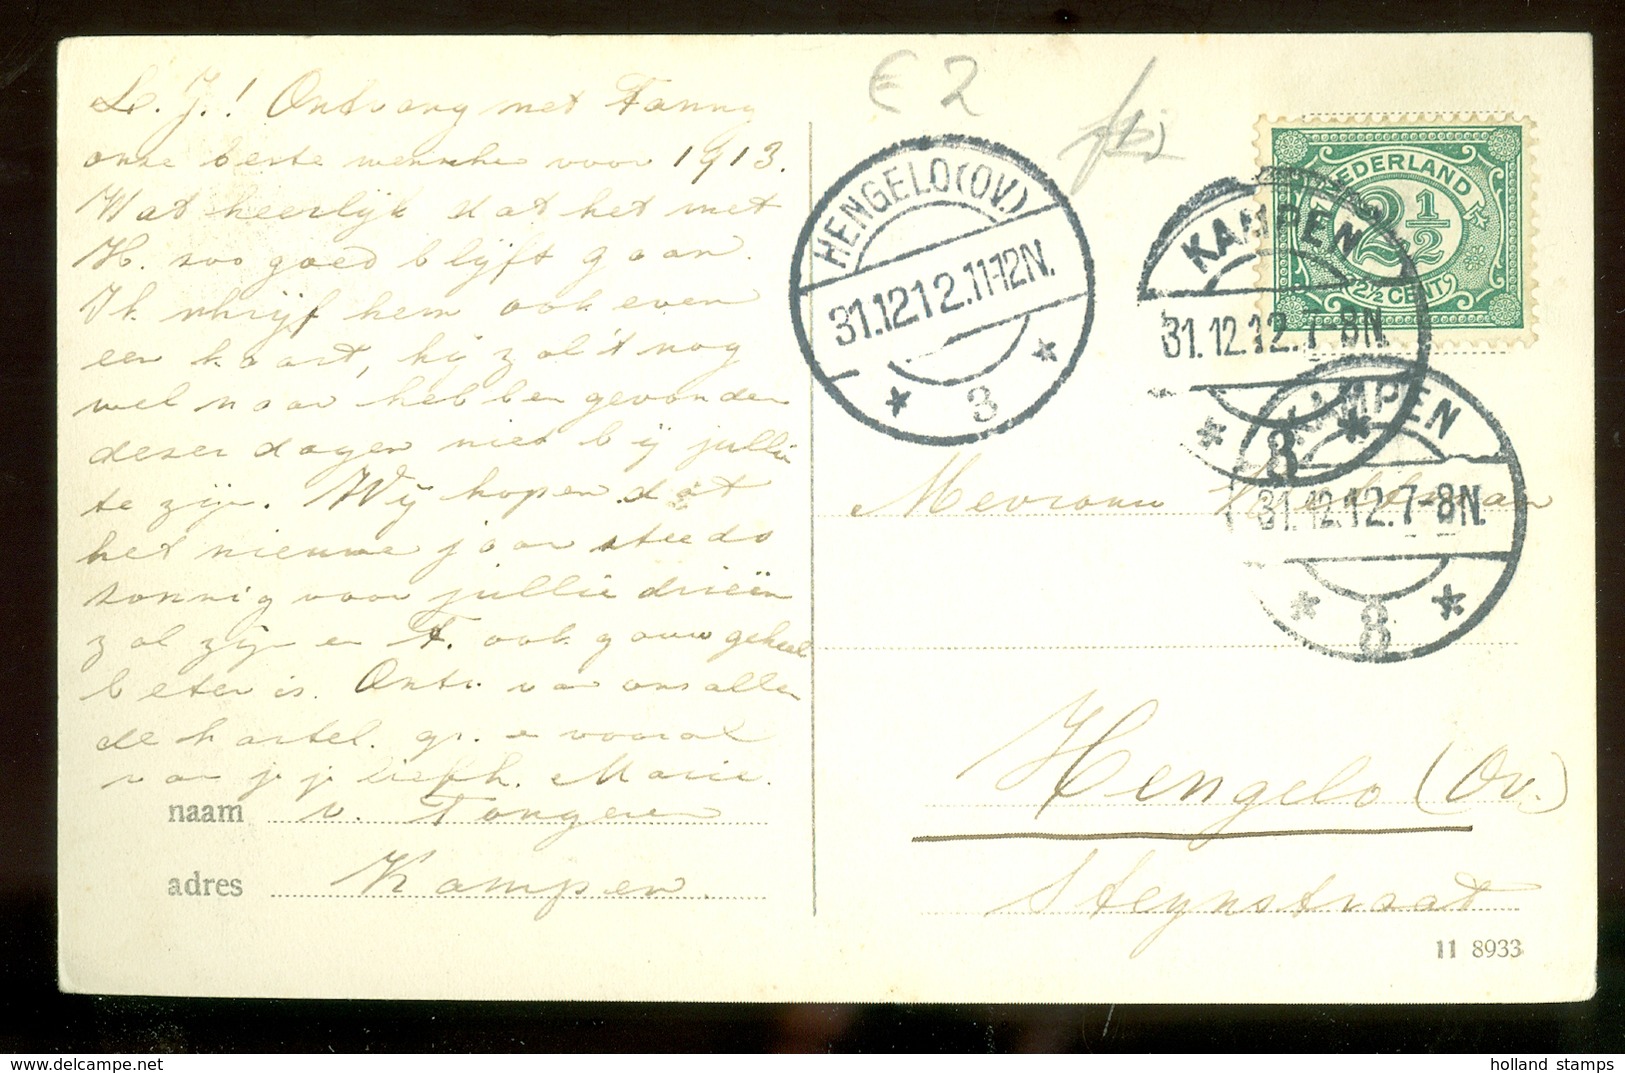 L. J.! Ontvang met Fanny
onze beste wensche voor 1913.
Wat heerlijk dat het met
H. zoo goed blijft gaan.
Ik schrijf hem ook even
een kaart, hij zal 't nog
wel naar hebben gevonden
dezer dagen niet bij jullie
te zijn. Wij hopen dat
het nieuwe jaar steeds
zonnig voor jullie drieën
zal zijn en F. ook gauw geheel
beter is. Ontv. van ons allen
de hartel. gr. e vooral
van je j liefh. Marie
naam v. Tongeren
adres Kampen.
€ 2
HENGELO (OV.)
31.12.12.11-12N.
3
NEDERLAND
2 1/2
2 1/2 CENT
KAMPEN
31.12.12.7-8N.
8
KAMPEN
31.12.12.7-8N.
8
Mevrouw
Hengelo (Ov.)
Steynstraat
11 8933
holland stamps